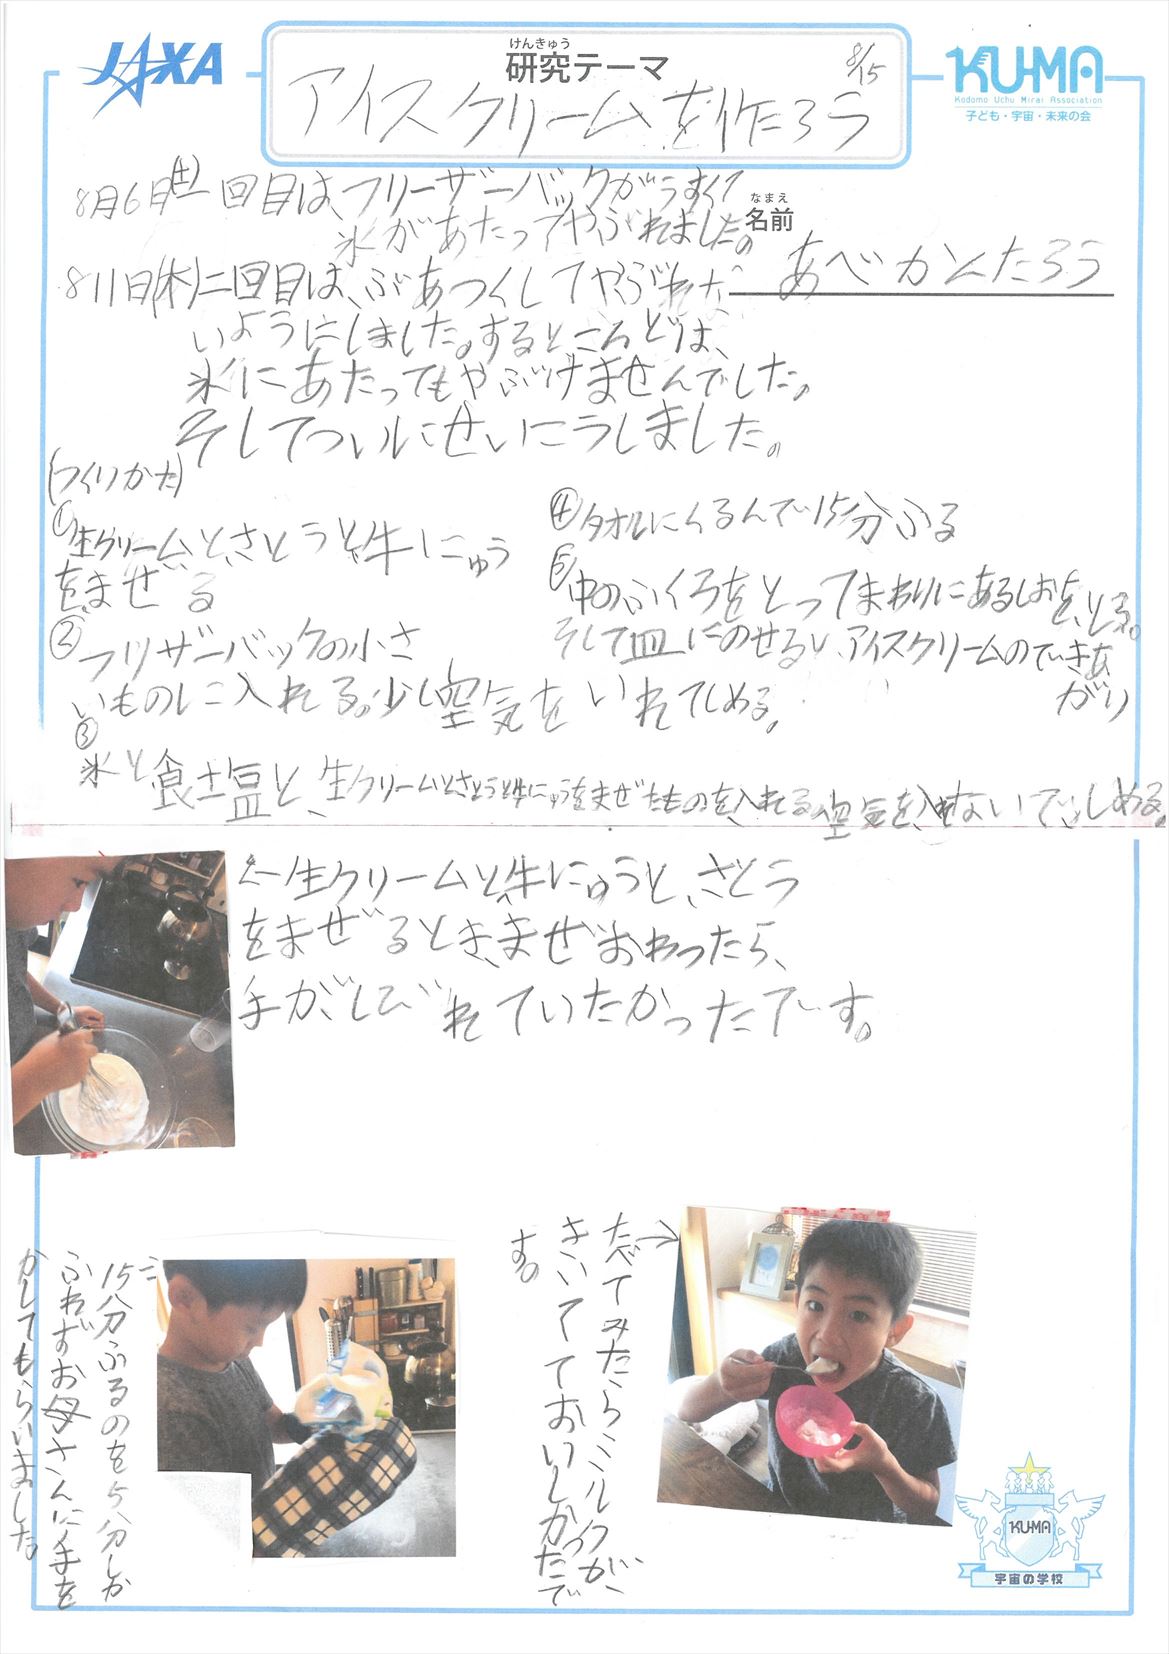 JAXA
けんきゅう
研究テーマ
8/15
アイスクリームを作たろう
KU-MA
Kodomo Uchu Mirai Association
子ども・宇宙・未来の会
8月6日(土)一回目は、フリーザーバックがうすくて
氷があたってやぶれました。
なまえ
名前
あべかんたろう
8/11日(木)二回目は、ぶあつくしてやぶれな
いようにしました。するところどは、
氷にあたってもやぶけませんでした。
そしてついにせいこうしました。
(つくりかた)
①生クリームと、さとうと、牛にゅう
をまぜる
②フリザーバックの小さ
いものに入れる。少し空気をいれてしめる。
③氷と食土塩と、生クリームとさとうと牛にゅうをまぜたものを、入れる。空気を入れないで、しめる。
④タオルにくるんで15分ふる
⑤中のふくろをとってまわりにあるしおを、とる。
そして皿にのせると、アイスクリームのできあ
がり
←生クリームと、牛にゅうと、さとう
をまぜるとき、まぜおわったら、
手が、しびれていたかったです。
15分ふるのを5分しか
ふれずお母さんに手を
かしてもらいました。
たべてみたらミルクが、
きいてておいしかったで
す。
KU-MA
宇宙の学校